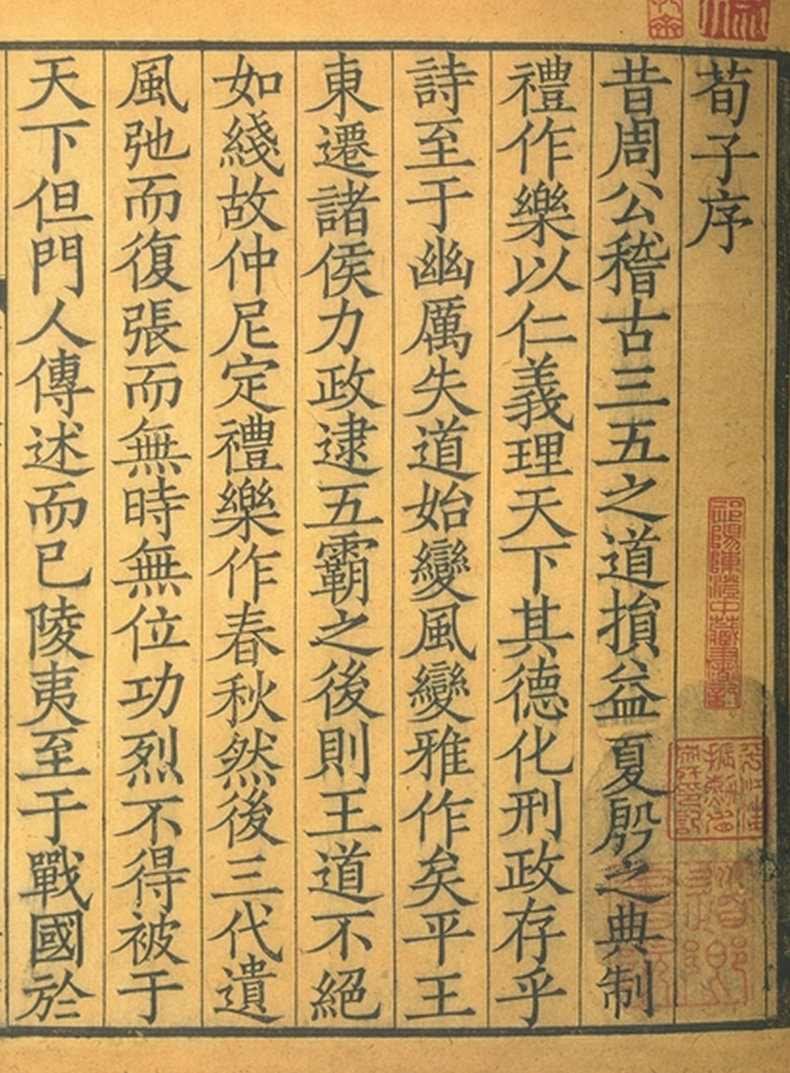 荀子序
昔周公稽古三五之道損益夏殷之典制
禮作樂以仁義理天下其德化刑政存乎
詩至于幽厲失道始變風變雅作矣平王
東遷諸侯力政逮五霸之後則王道不絕
如綫故仲尼定禮樂作春秋然後三代遺
風弛而復張而無時無位功烈不得被于
天下但門人傳述而已陵夷至于戰國於